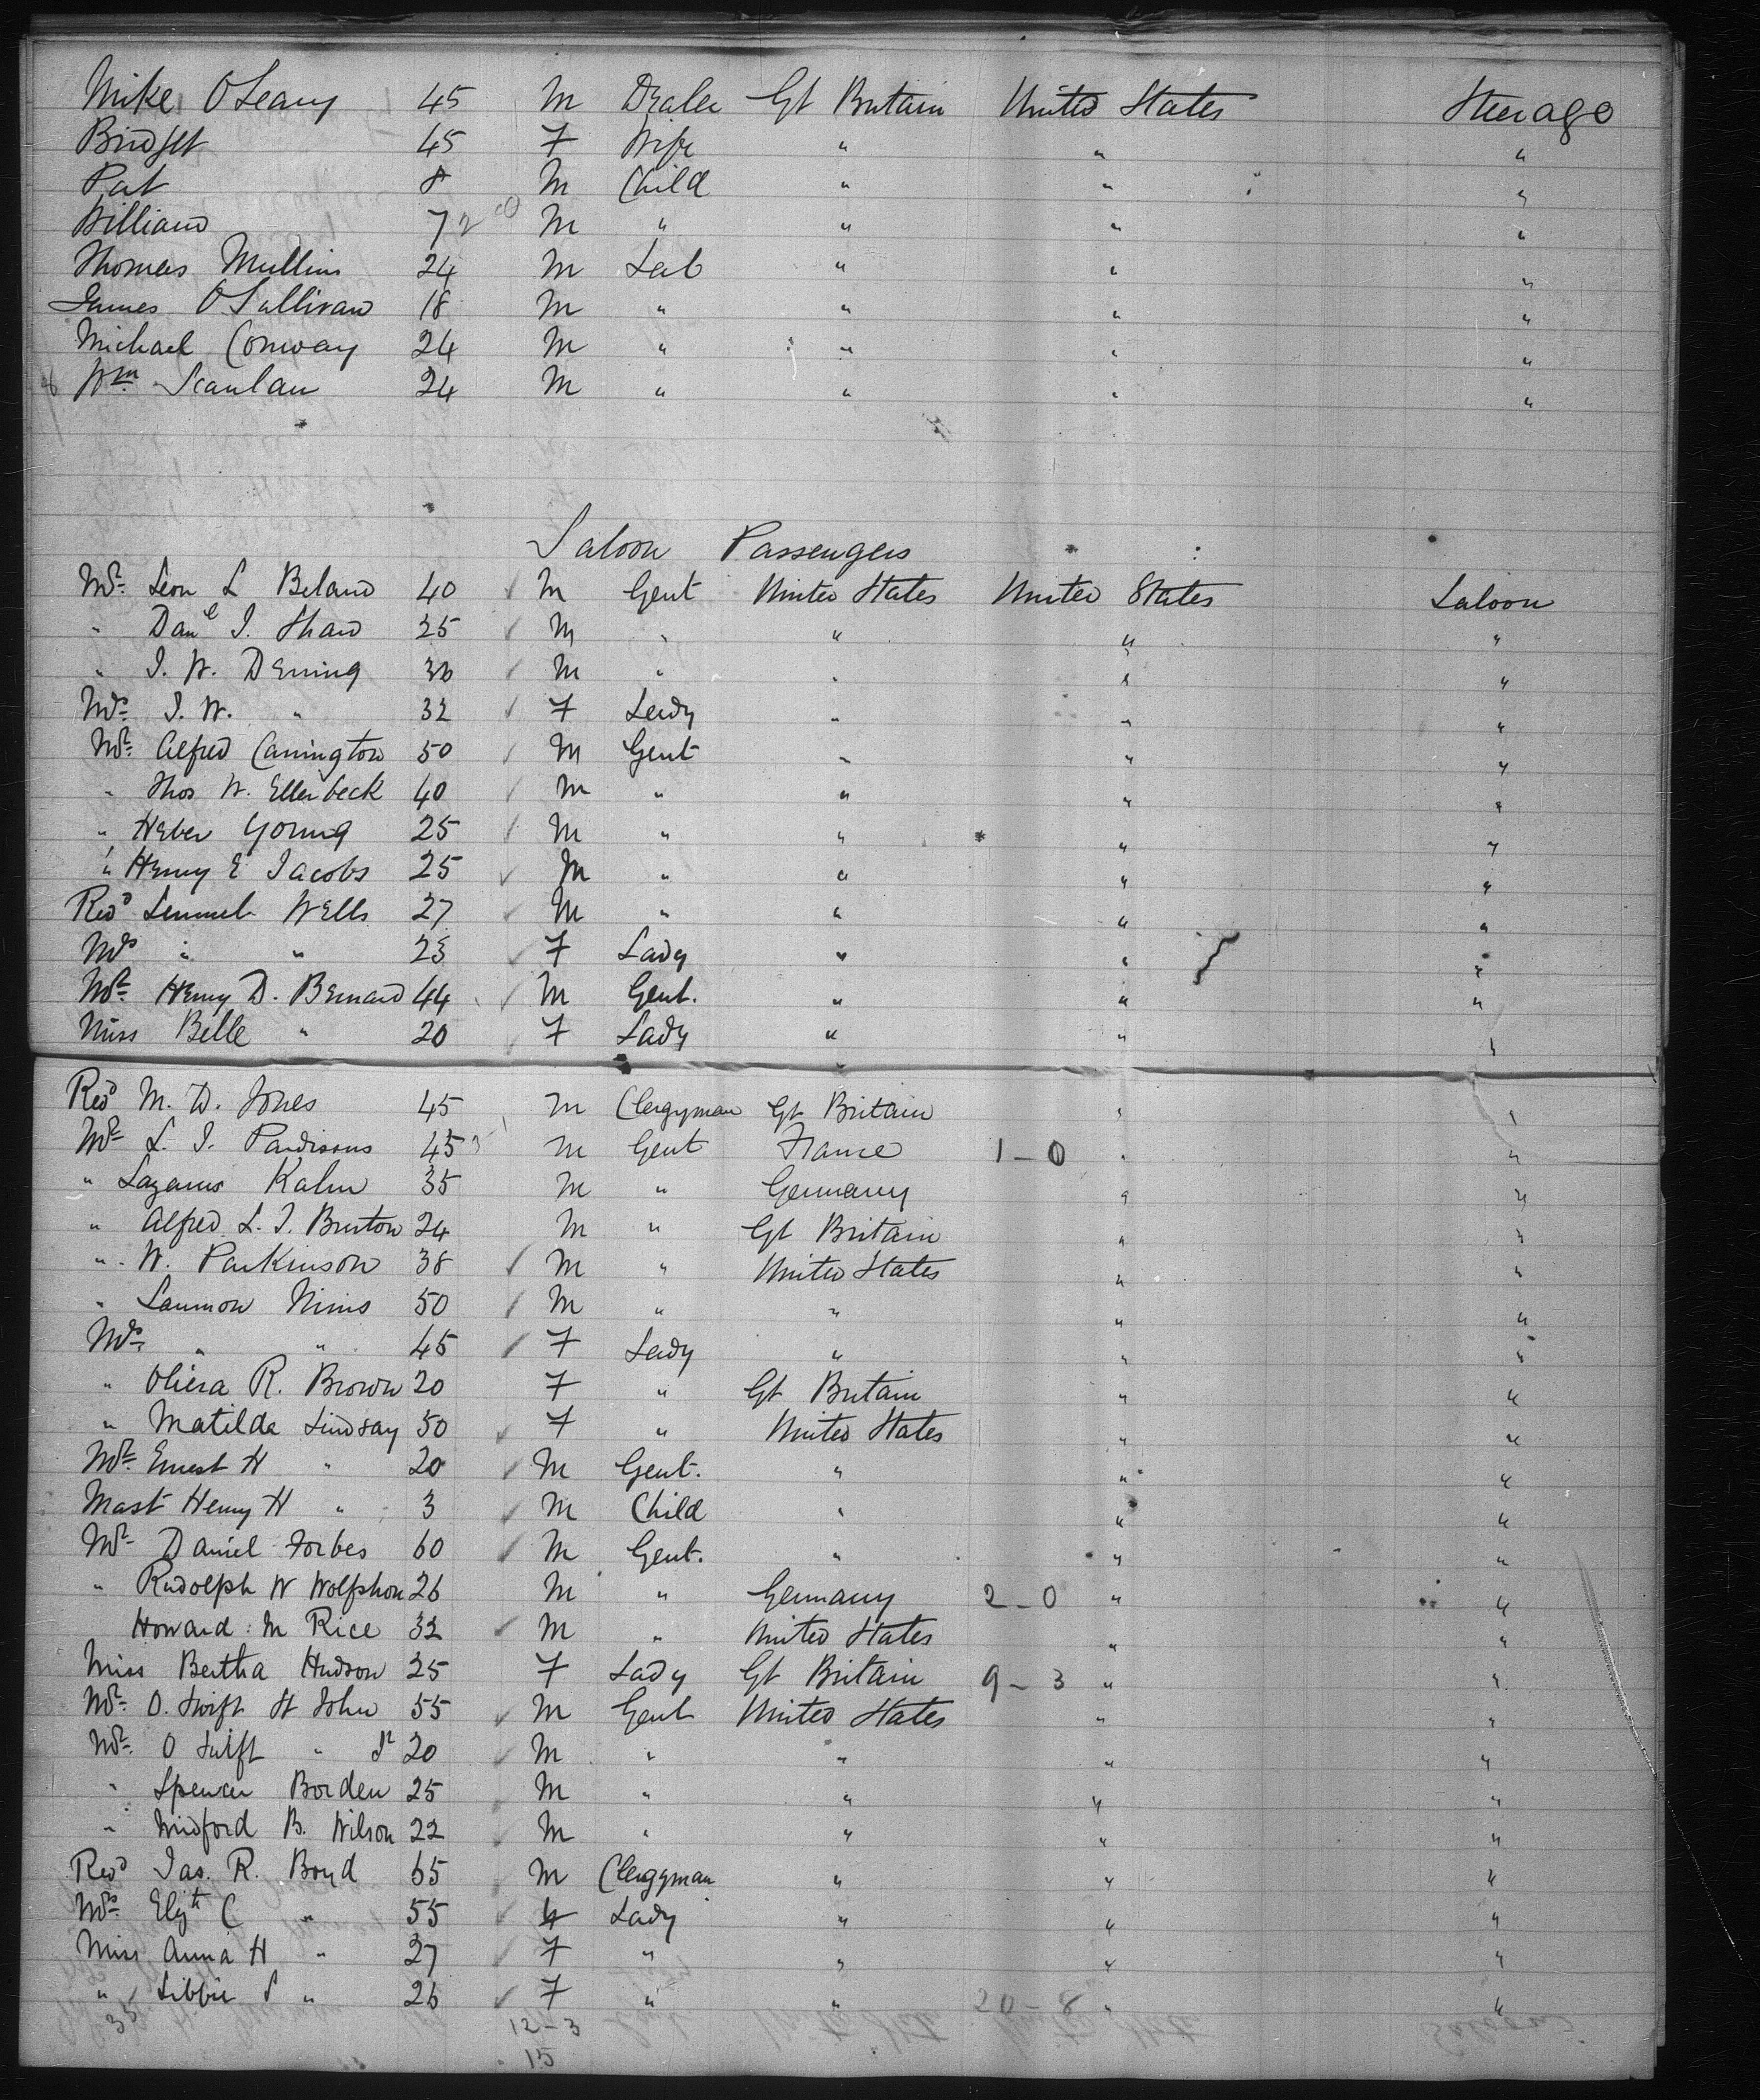 Mike O'Leary 45 M Dealer Gt Britain United States Steerage
Bridget 45 F Wife " " "
Pat 8 M Child " " "
William 7 M " " " "
Thomas Mullins 24 M Lab " " "
James O'Sullivan 18 M " " " "
Michael Conway 24 M " " " "
Wm Scanlan 24 M " " " "
Saloon Passengers
Mr. Leon L 40 M Gent United States United States Saloon
" Danl I. Shaw 25 M " " " "
" I. W. Deming M " " " "
Mrs. I. W. " 32 F Lady " " "
Mr. Alfred Carrington 50 M Gent " " "
" Thos W. Ellerbeck 40 M " " " "
" Heber Young 25 M " " " "
" Henry E Jacobs 25 M " " " "
Revd Lemuel Wells 27 M " " " "
Mrs " " 23 F Lady " " "
Mr. Henry D. Bernard 44 M Gent. " " "
Miss Belle " 20 F Lady " " "
Revd M. D. Jones 45 M Clergyman Gt Britain " "
Mr. L. I. 45 M Gent France 1-0 " "
" Lazarus Kahn 35 M " Germany " "
" Alfred L. I. Burton 24 M " Gt Britain " "
" W. Parkinson 38 M " United States " "
" Nims 50 M " " " "
Mrs. " " 45 F Lady " " "
" R. Brown 20 F " Gt Britain " "
" Matilda Lindsay 50 F " United States " "
Mr. Ernest H " 20 M Gent. " " "
Mast Henry H " 3 M Child " " "
Mr. Daniel Forbes 60 M Gent. " " "
" Rudolph W Wolfshon 26 M " Germany 2-0 " "
Howard M Rice 32 M " United States " "
Miss Bertha Hudson 25 F Lady Gt Britain 9-3 " "
Mr. O. Swift St John 55 M Gent United States " "
Mr. O Swift " Jr 20 M " " " "
" Spencer Borden 25 M " " " "
" Midford B. Wilson 22 M " " " "
Revd Jas. R. Boyd 65 M Clergyman " " "
Mrs. Elizth C " 55 F Lady " " "
Miss Anna H " 27 F " " " "
" Libbie S " 26 F " " 20-8 " "
35 12-3
15